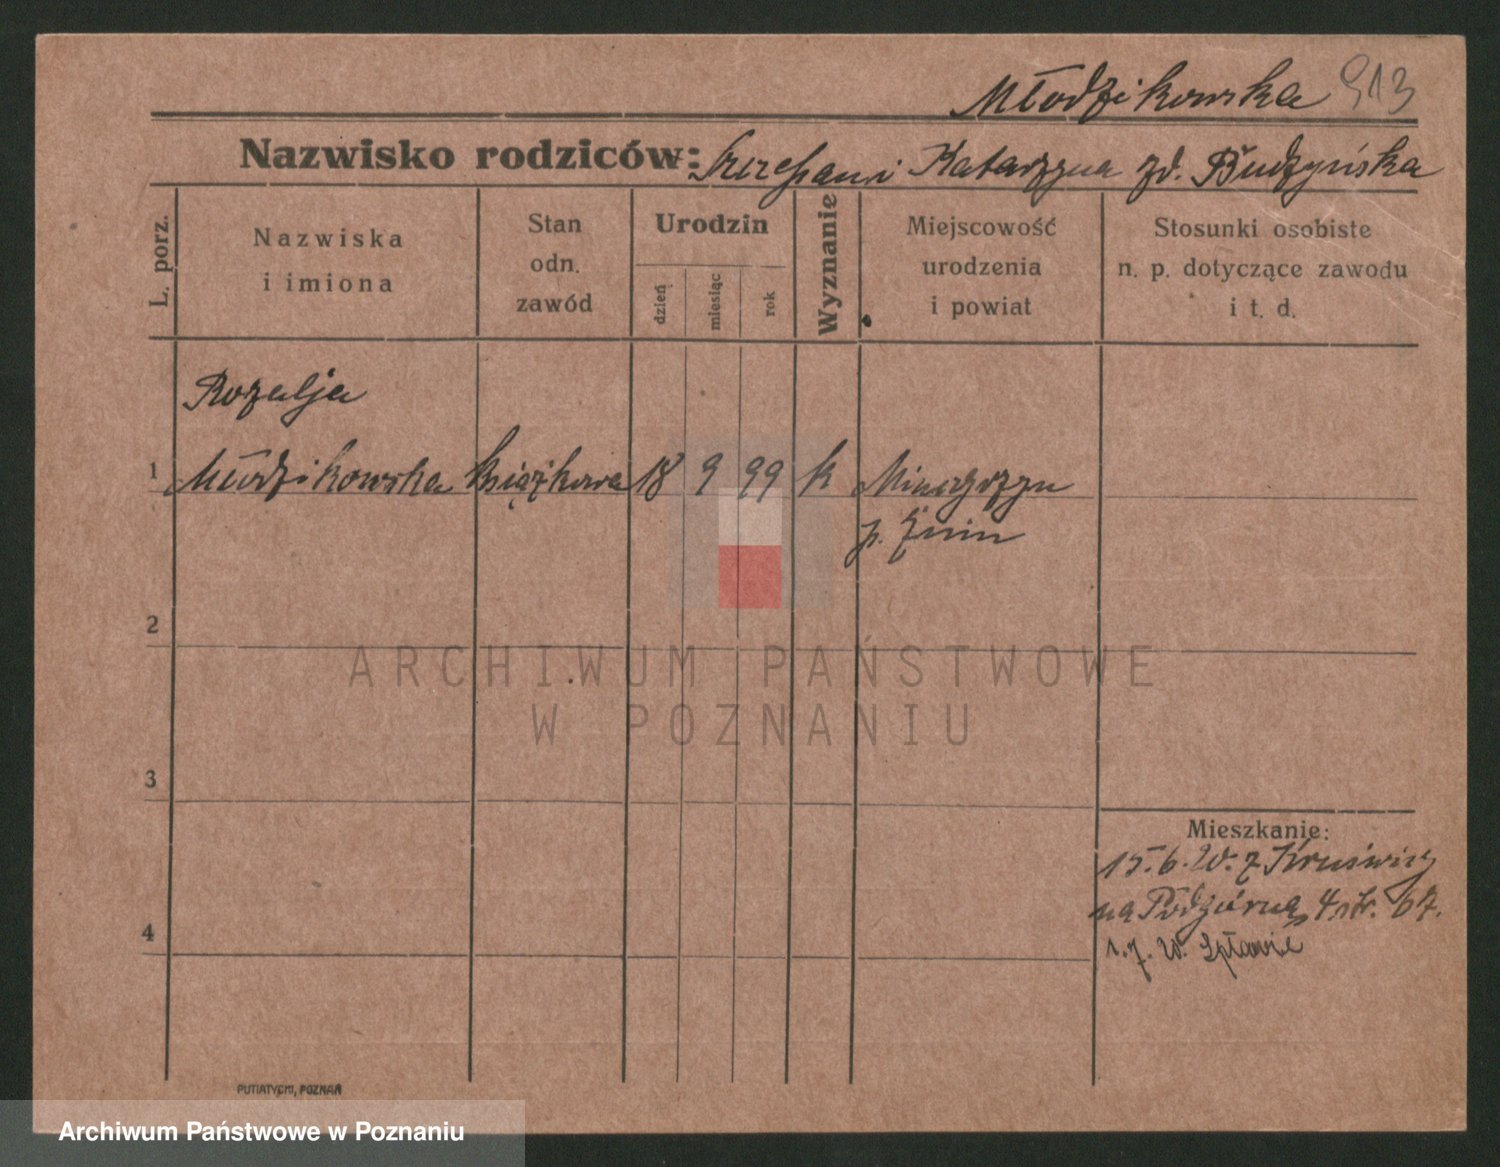 Młodzikowska 913
Nazwisko rodziców: Szczepan i Katarzyna zd. Budzyńska
L. porz.
Nazwiska
i imiona
Stan
odn.
zawód
Urodzin
dzień
miesiąc
rok
Wyznanie
Miejscowość
urodzenia
i powiat
Stosunki osobiste
n. p. dotyczące zawodu
i t. d.
Rozalja
1 Młodzikowska książkowa 18 9 99 k
p. Żnin
2
ARCHIWUM PAŃSTWOWE
W POZNANIU
3
Mieszkanie:
15.6.20. z Kruświcy
na Podgórną 4 str. 67.
4
1.7. 20. Spławie
PUTIATYCKI, POZNAŃ
Archiwum Państwowe w Poznaniu